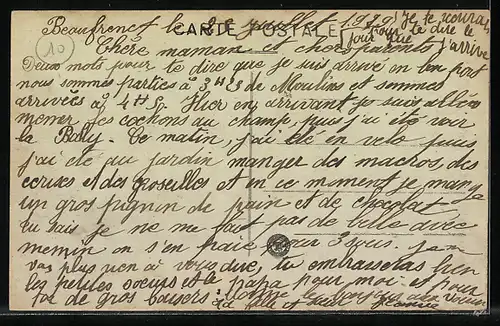 Beaufrenet le 22 juillet 1929
CARTE POSTALE
Je te
pour te dire le
jour que j'arrive
10
Chère maman et chers parents
Deux mots pour te dire que je suis arrivé en bon port
nous sommes parties à 3H23 de Moulins et sommes
arrivées à 4H Hier en arrivant je suis allée
mener les cochons au champ, puis j'ai été voir
la Ce matin, j'ai été en velo puis
j'ai été au jardin manger des macros des
cerises et des groseilles et en ce moment je mange
un gros pignon de pain et de chocolat
tu sais je ne me fait pas de bille avec
memin, on s'en paie pour 3 sous. J'en
vas plus rien à vous dire, tu embrasseras bien
les petites soeurs et le papa pour moi et pour
toi de gros baisers
ta fille et